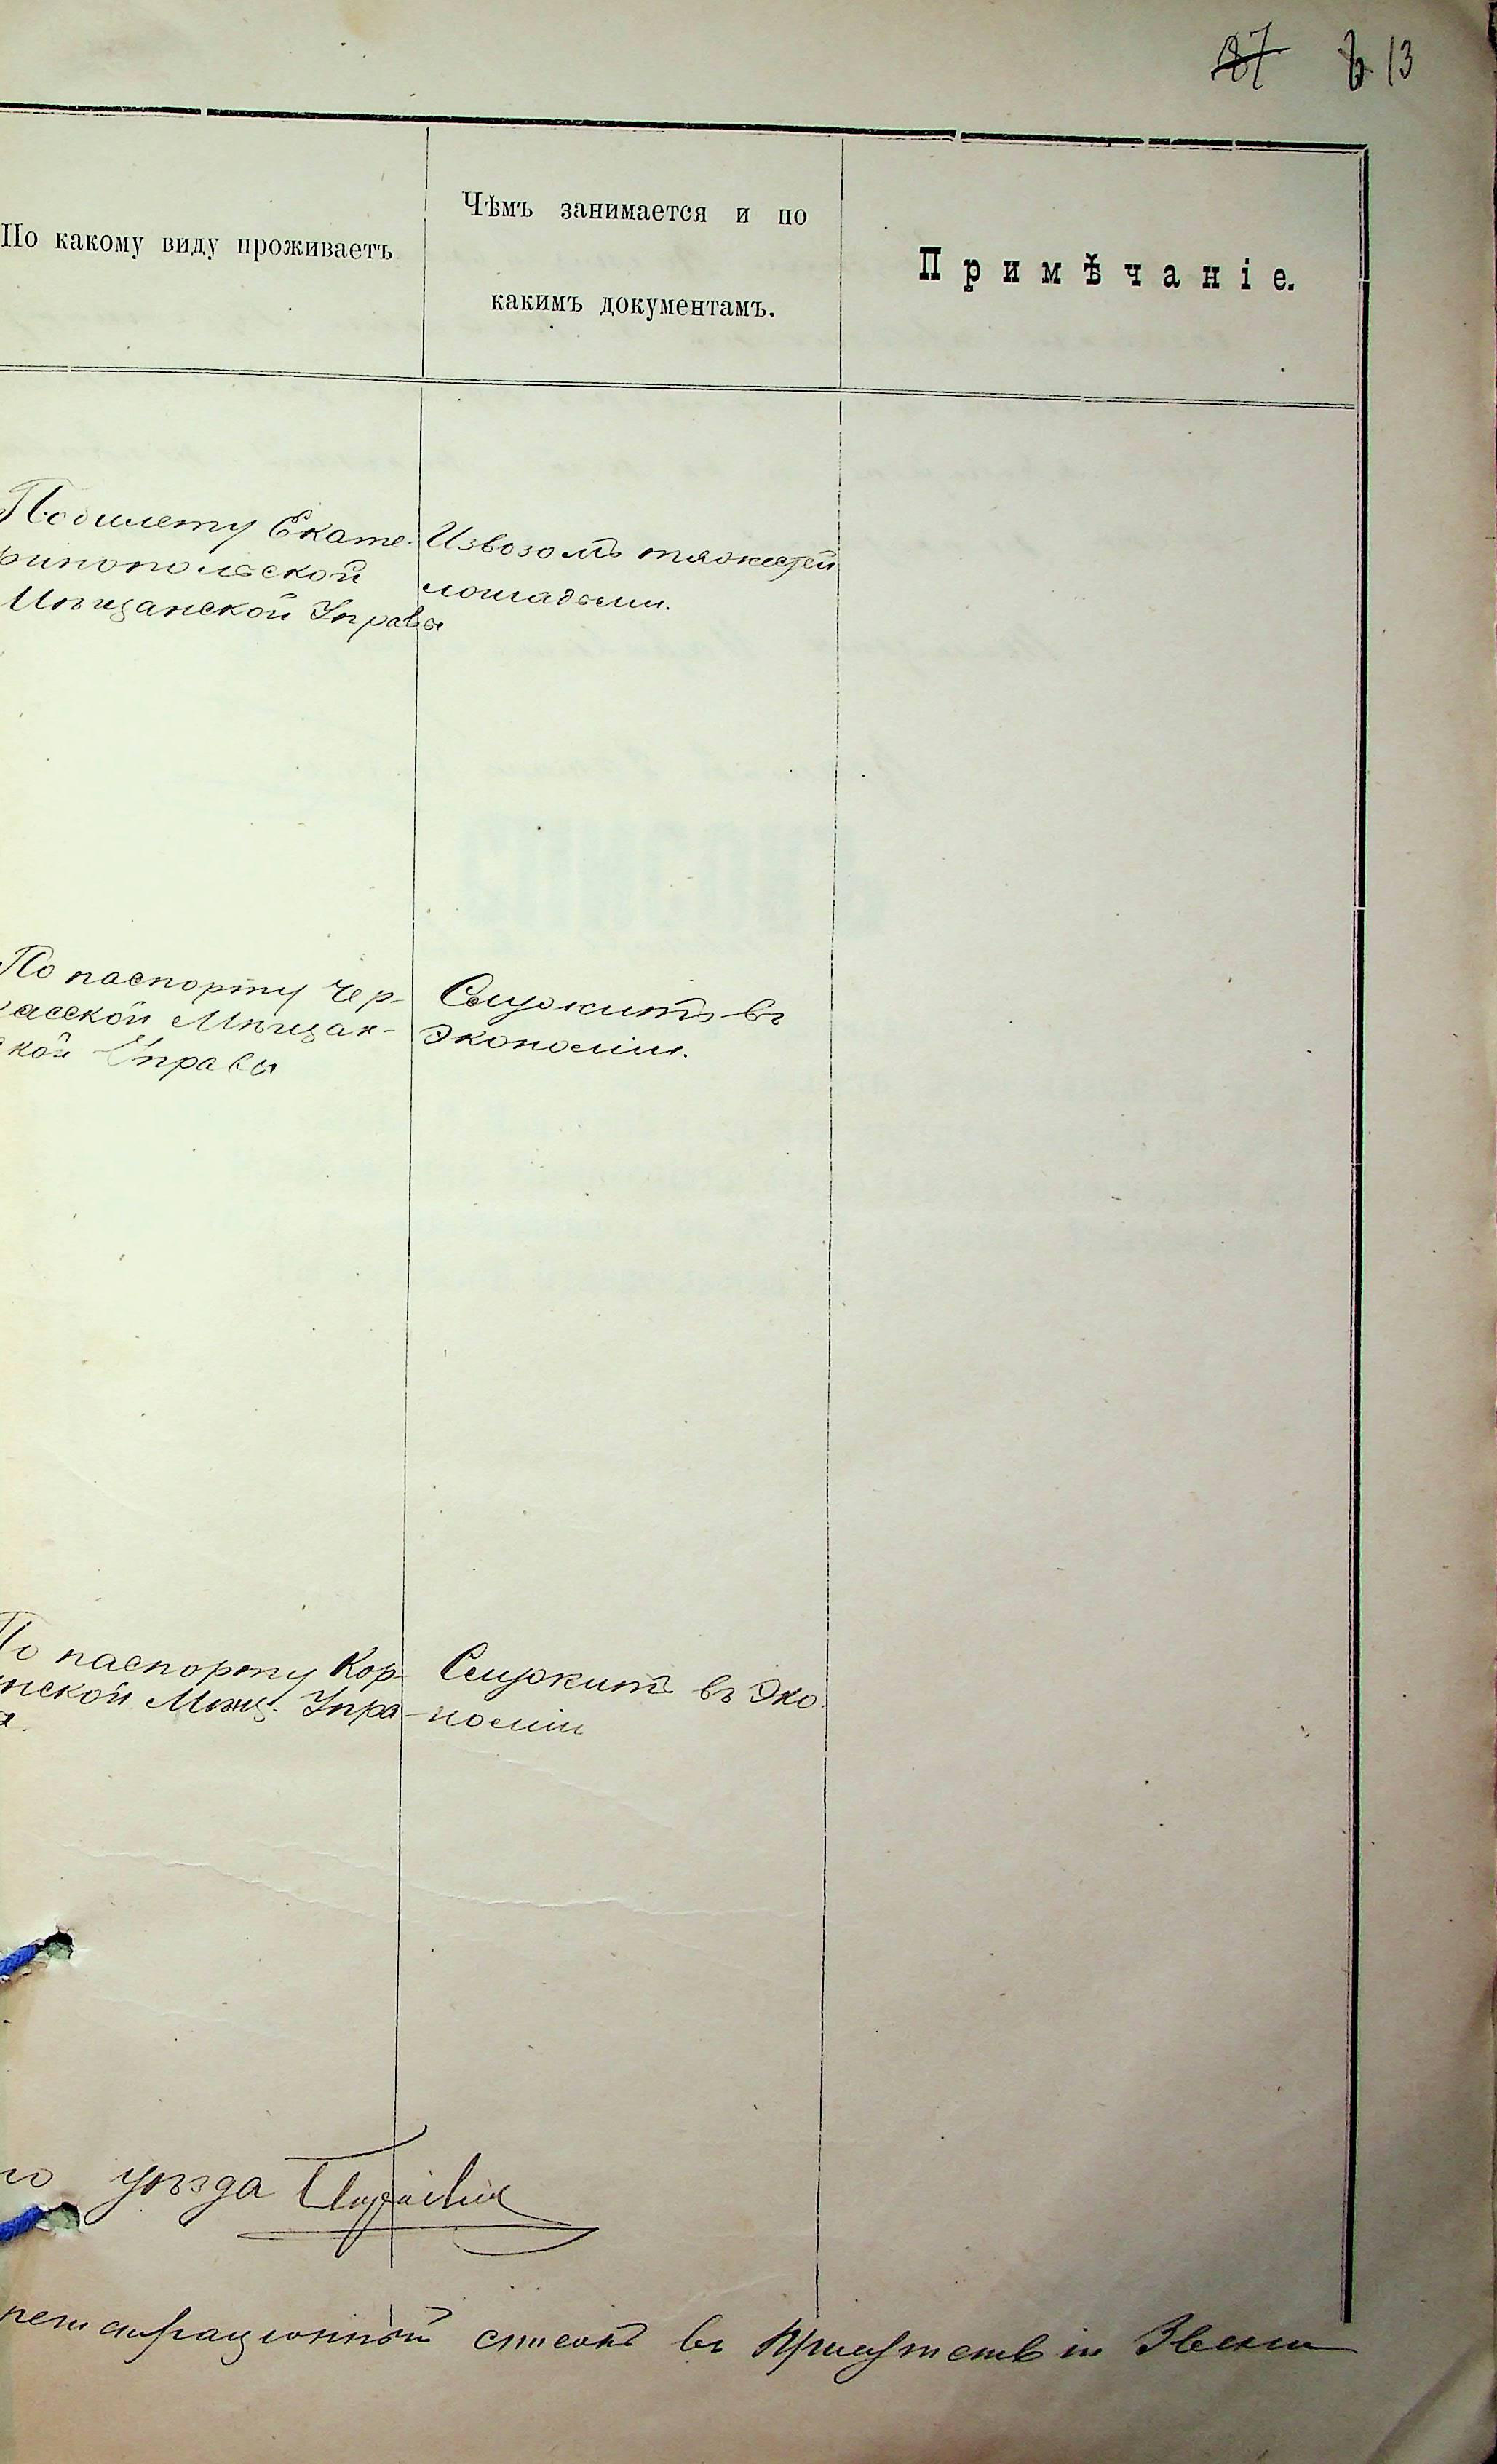 87 13
По какому виду проживаетъ
Чѣмъ занимается и по
какимъ документамъ.
Примѣчаніе.
По билету Екате-
ринопольской
Мѣщанской Управы
Извозомъ тяжестей
лошадьми.
По паспорту Чер-
касской Мѣщан-
ской Управы
Служитъ въ
Экономіи.
По паспорту Кор-
нской Мѣщ. Упра-
Служитъ въ Эко-
номіи
го уѣзда
регистраціонный списокъ въ Присутствіи Звени